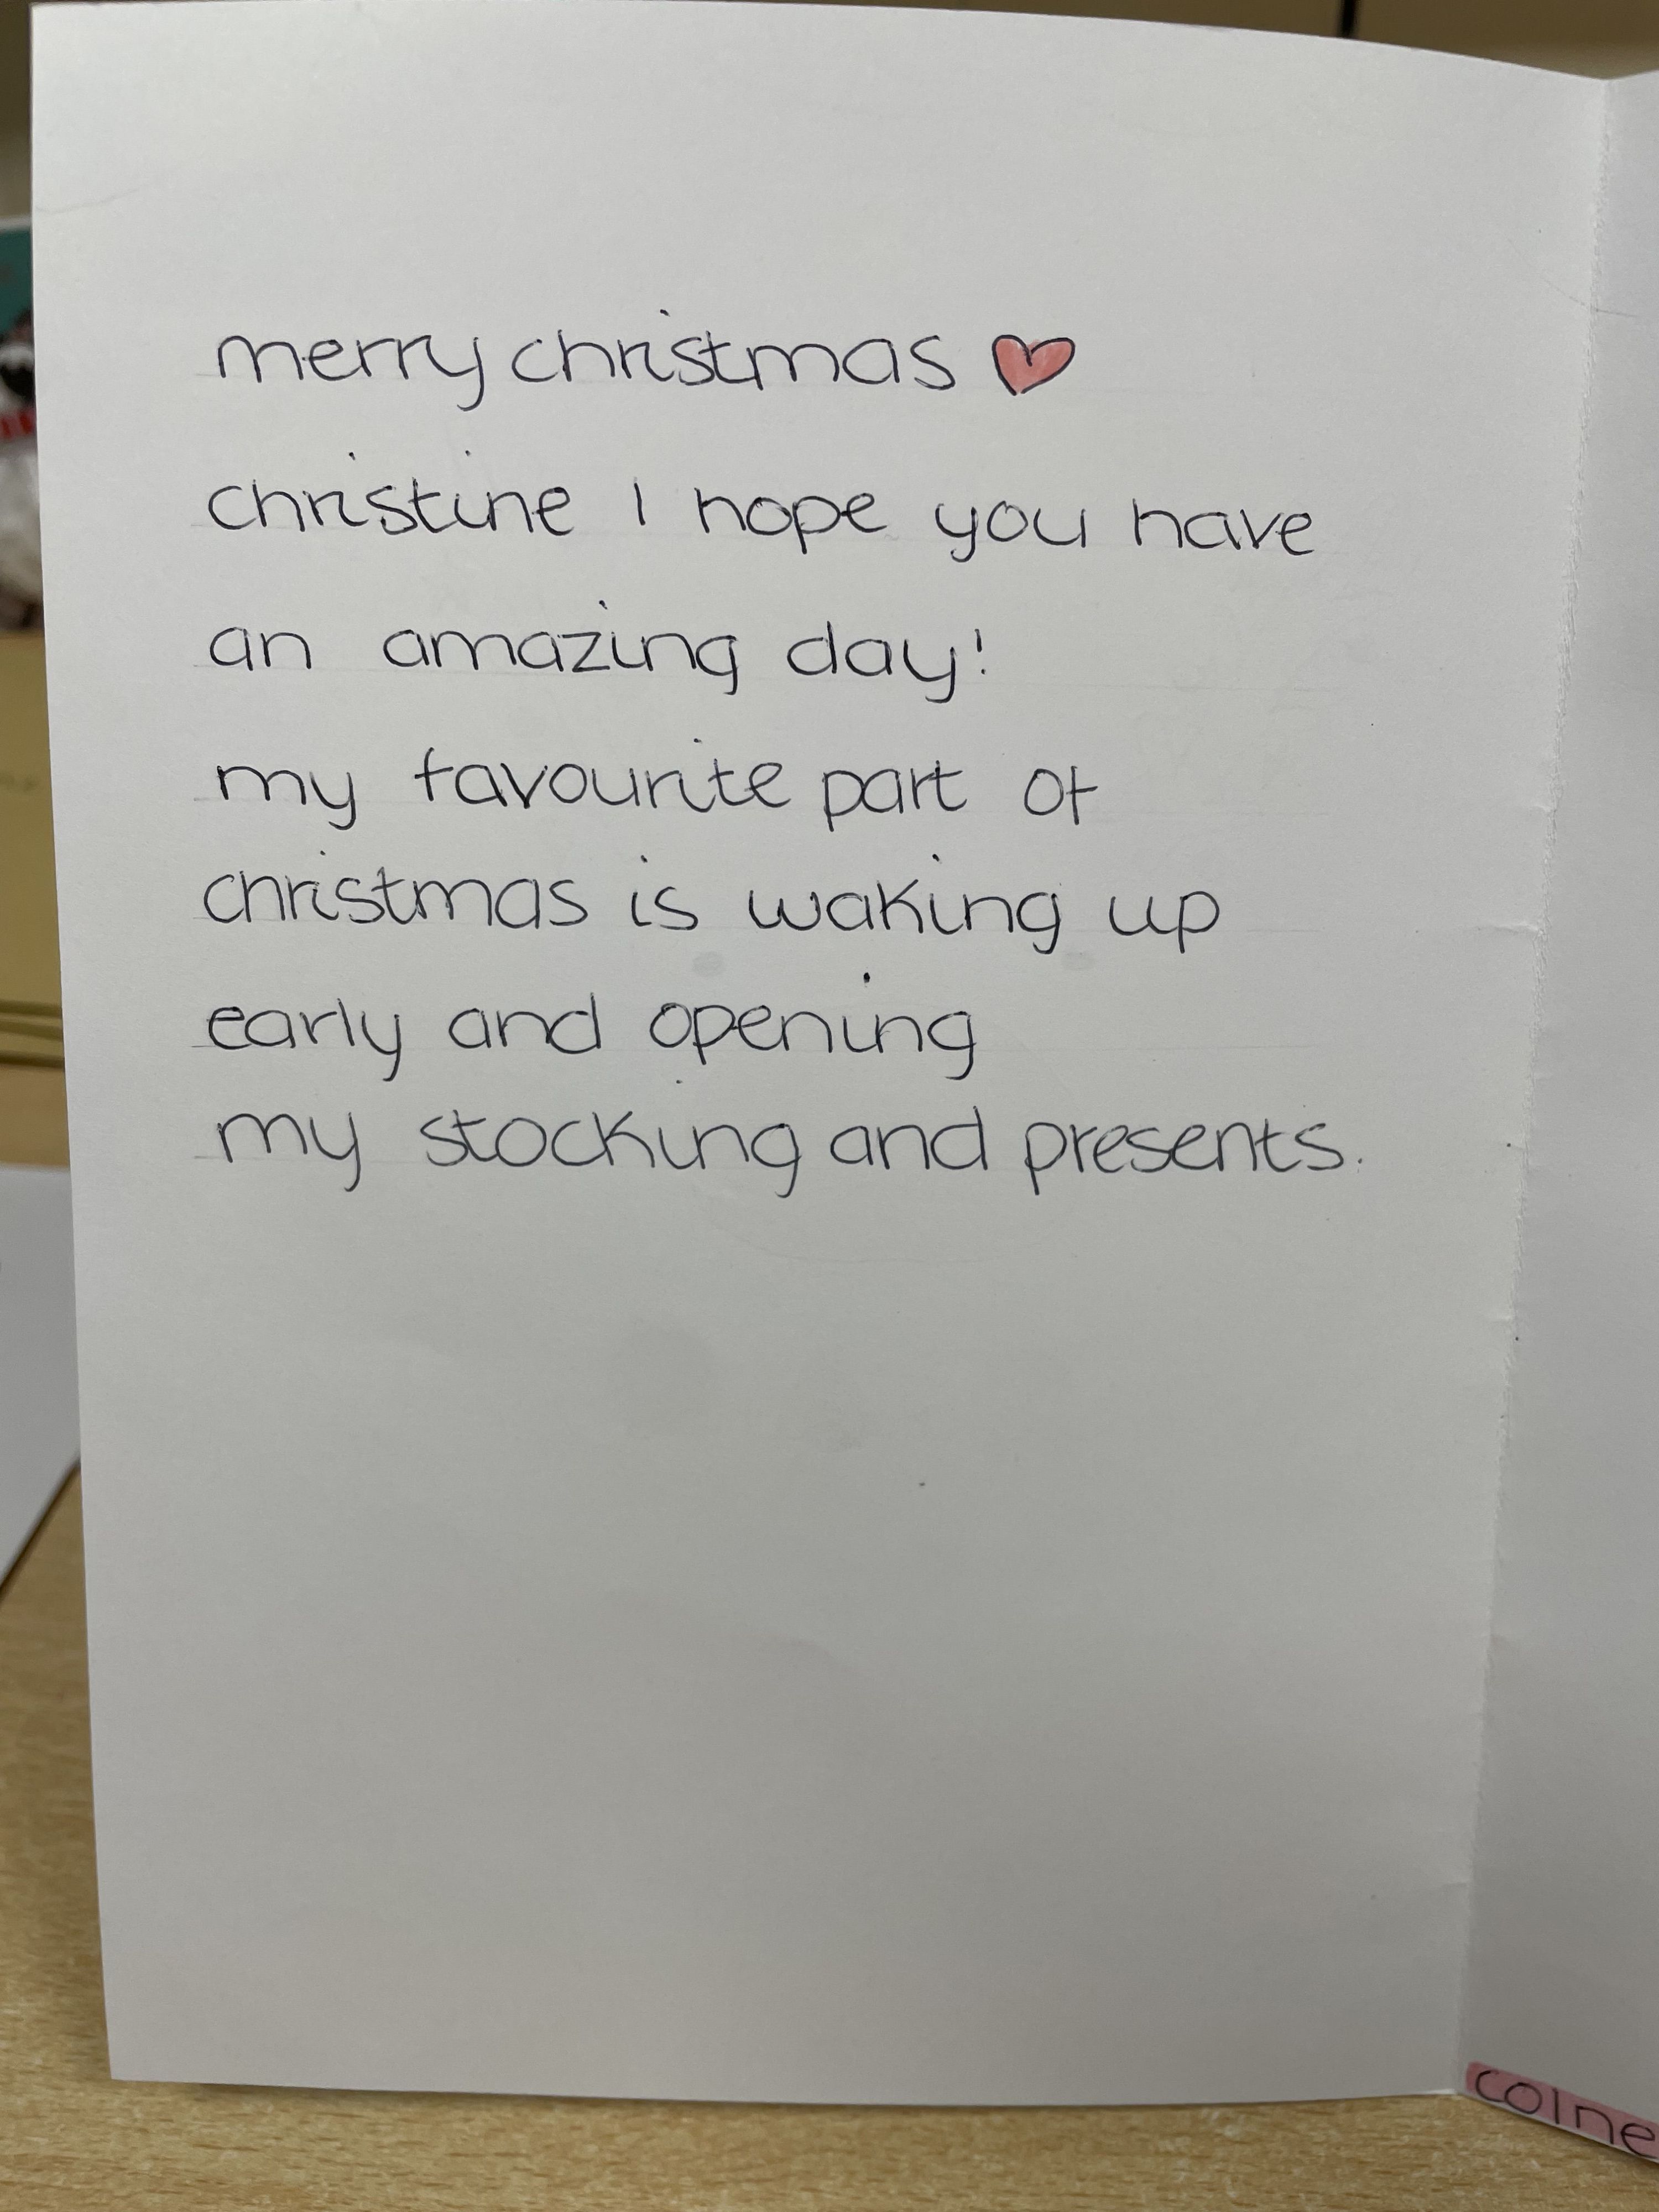 merry christmas ♥
christine I hope you have
an amazing day!
my favourite part of
christmas is waking up
early and opening
my stocking and presents.
colne